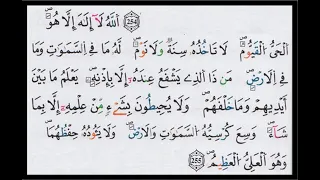 ﴿254﴾ اَللّٰهُ لَآ اِلٰهَ اِلَّا هُوَ ۚ
اَلْحَىُّ الْقَيُّوْمُ ۚ لَا تَاْخُذُهٗ سِنَةٌ وَّلَا نَوْمٌ ۗ لَهٗ مَا فِى السَّمٰوٰتِ وَمَا
فِى الْاَرْضِ ۗ مَنْ ذَا الَّذِىْ يَشْفَعُ عِنْدَهٗٓ اِلَّا بِاِذْنِهٖ ۗ يَعْلَمُ مَا بَيْنَ
اَيْدِيْهِمْ وَمَا خَلْفَهُمْ ۚ وَلَا يُحِيْطُوْنَ بِشَىْءٍ مِّنْ عِلْمِهٖٓ اِلَّا بِمَا
شَآءَ ۚ وَسِعَ كُرْسِيُّهُ السَّمٰوٰتِ وَالْاَرْضَ ۚ وَلَا يَئُوْدُهٗ حِفْظُهُمَا ۚ
وَهُوَ الْعَلِىُّ الْعَظِيْمُ ﴿255﴾